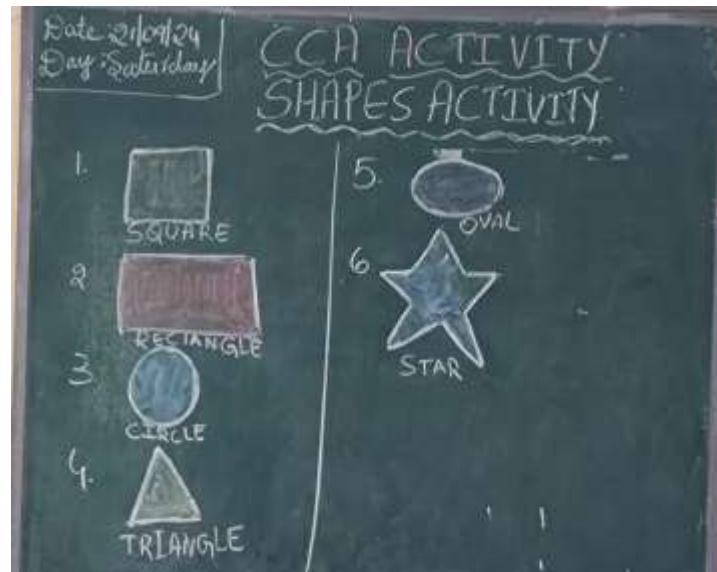 Date 21/09/24
Day : Saturday
CCA ACTIVITY
SHAPES ACTIVITY
1.
SQUARE
2
RECTANGLE
3
CIRCLE
4.
TRIANGLE
5.
OVAL
6
STAR